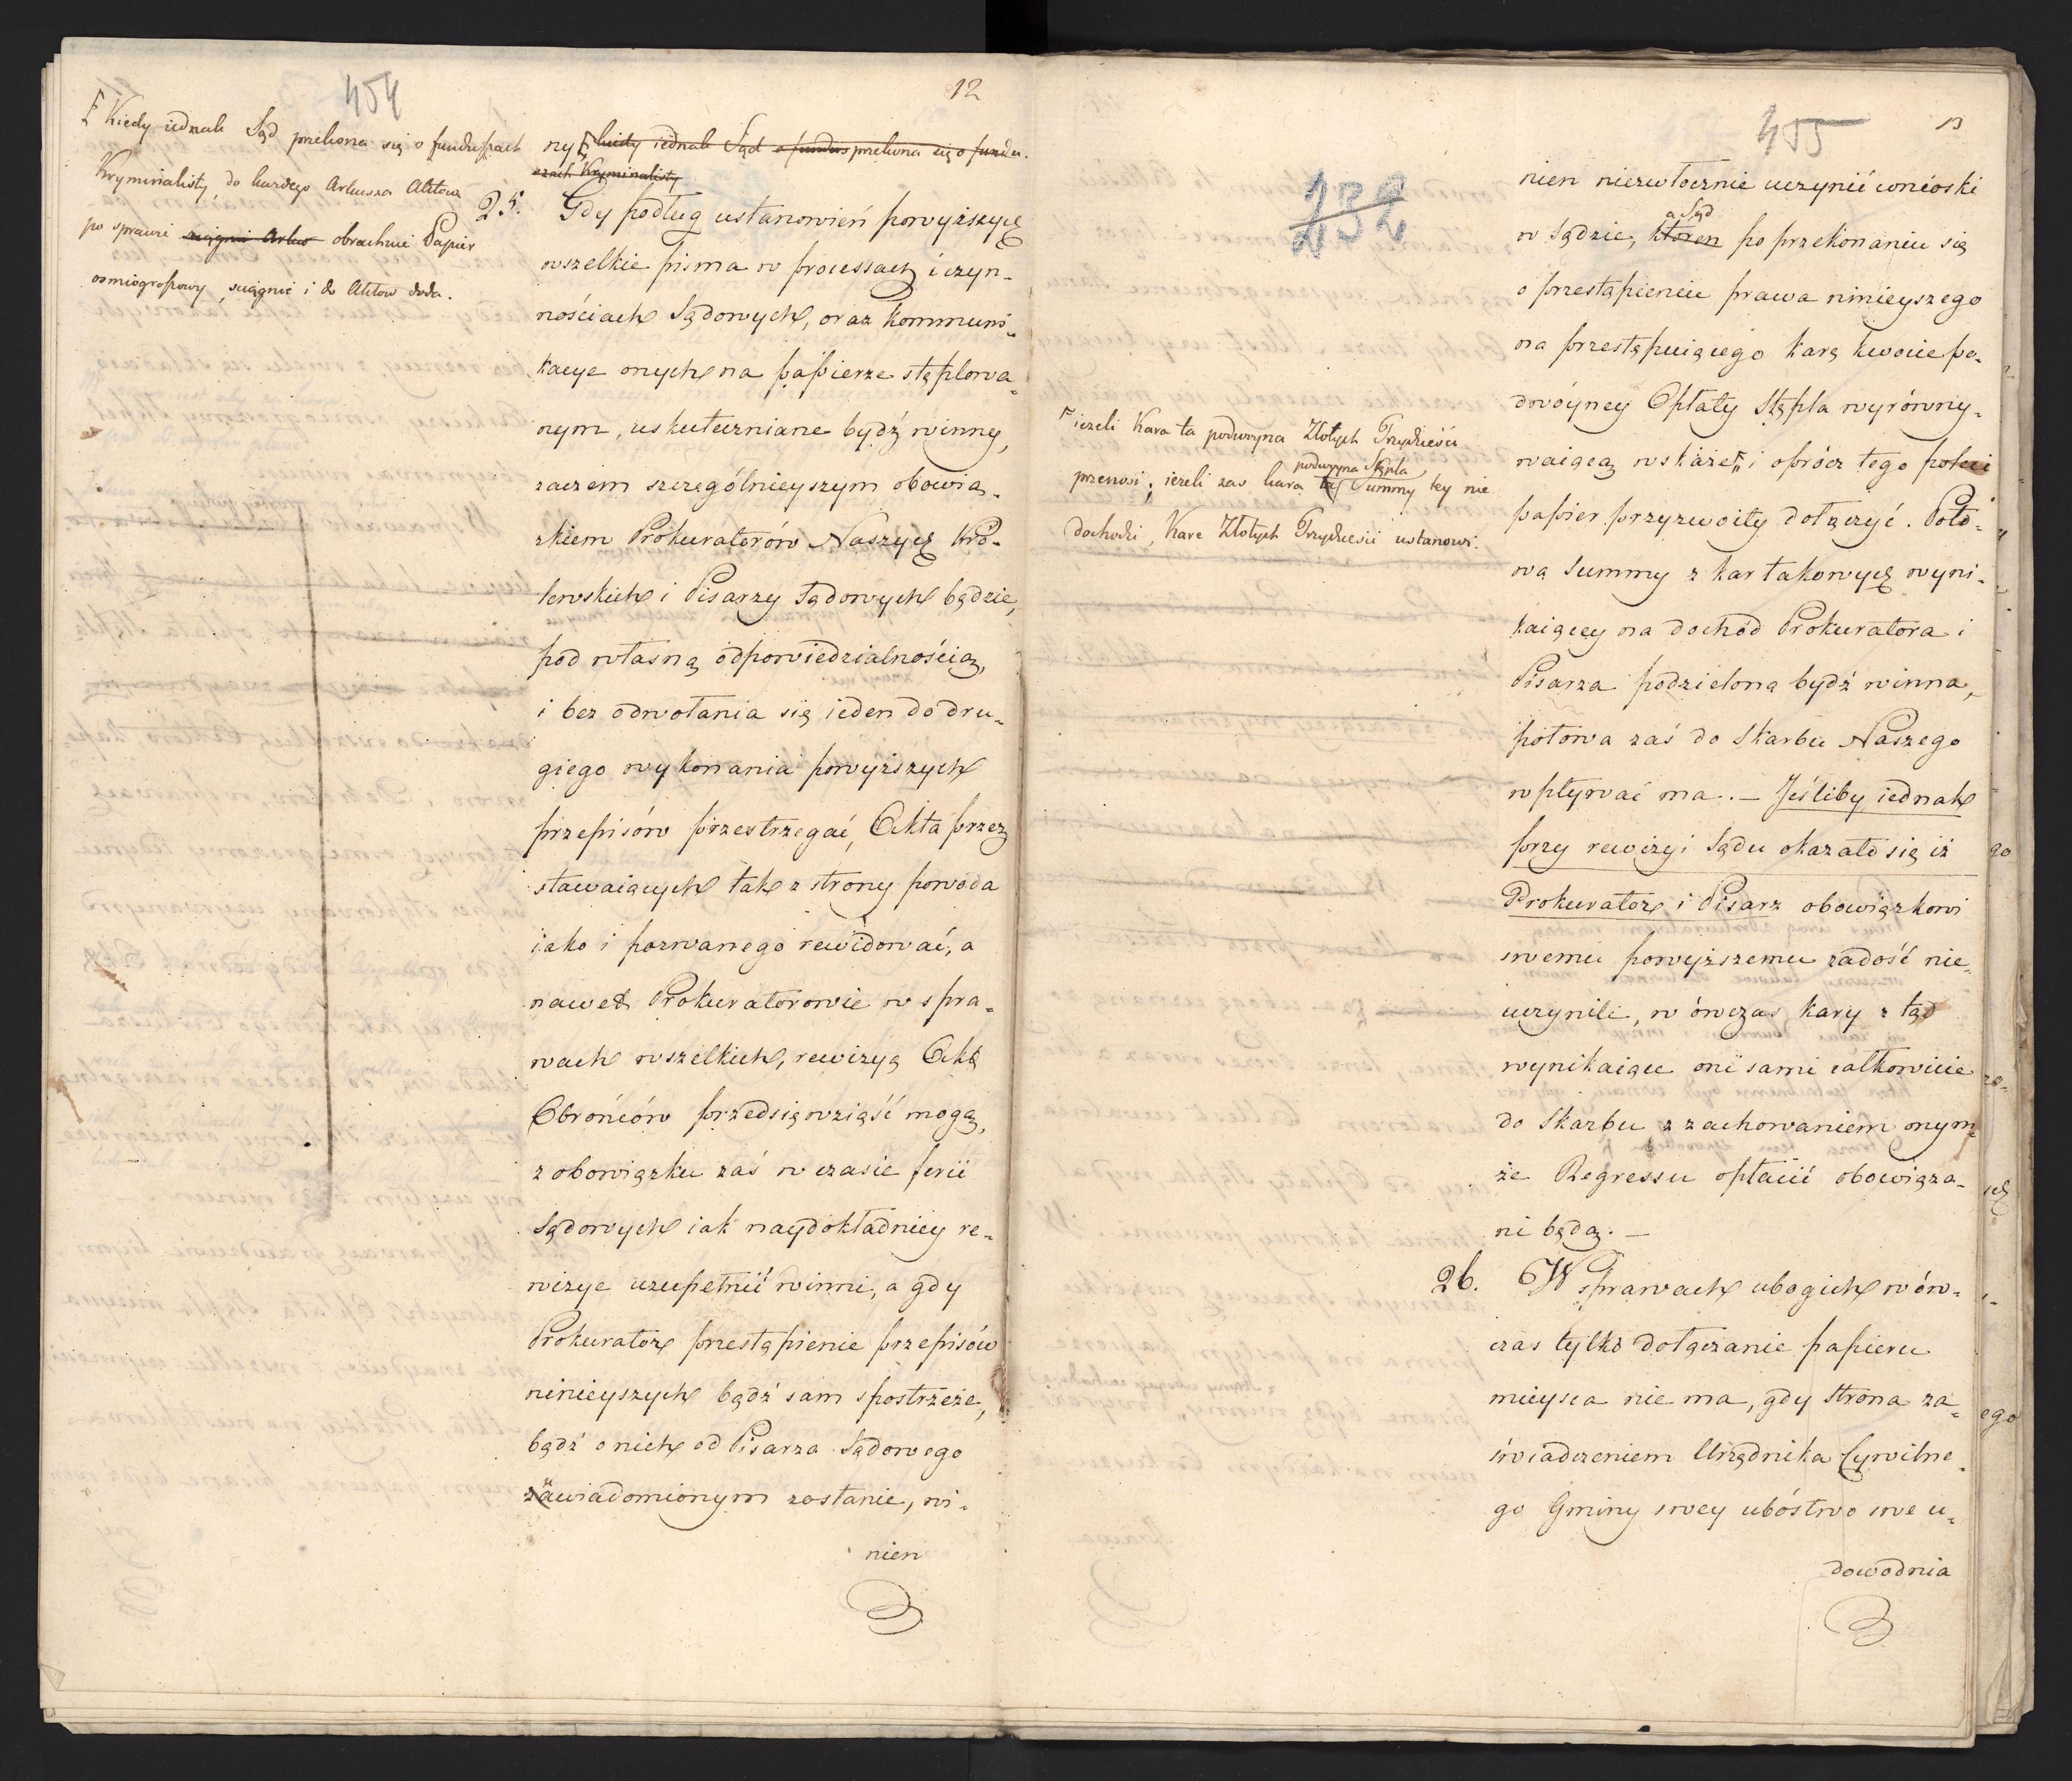 454
12
Kiedy iednak Sąd przekona się o funduszach
Kryminalisty, do każdego Arkusza Aktow
po sprawie ściągnie Arku obrachuie Papier
osmiogroszowy, ściągnie i do Aktow doda.
ny, kiedy iednak Sąd o fundus przekona się o fundu-
szach Kryminalisty
25. Gdy podług ustanowień powyższych
wszelkie pisma w processach i czyn-
nościach Sądowych, oraz kommuni-
kacye onych na papierze stęplowa-
nym, uskuteczniane bydź winny,
zaczem szczególnieyszym obowią-
zkiem Prokuratorów Naszych Kró-
lewskich i Pisarzy Sądowych będzie,
pod własną odpowiedzialnością,
i bez odwołania się ieden do dru-
giego wykonania powyższych
przepisów przestrzegać, Akta przez
stawaiących tak z strony powoda
iako i pozwanego rewidować, a
nawet Prokuratorowie w spra-
wach wszelkich, rewizyą Akt
Obrońców przedsięwziąść mogą,
z obowiązku zaś w czasie ferii
Sądowych iak naydokładniey re-
wizye uzupełnić winni, a gdy
Prokurator przestąpienie przepisów
ninieyszych bądź sam spostrzeże,
bądź o nich od Pisarza Sądowego
zawiadomionym zostanie, wi-
nien
455
13
232
ieżeli Kara ta podwoyna Złotych Trzydzieści
podwoyna Stępla
przenosi; ieżeli zas kara ta Summy tey nie
dochodzi, Kare Złotych Trzydziesci ustanowi.
nien niezwłocznie uczynić wnioski
a Sąd
w Sądzie, któren po przekonaniu się
o przestąpieniu prawa ninieyszego
na przestępuiącego karę kwocie po-
dwóyney Opłaty Stępla wyrówny-
waiącą wskaże, i oprócz tego poleci
papier przyzwoity dołączyć. Poło-
wa Summy z kar takowych wyni-
kaiącey na dochód Prokuratora i
Pisarza podzieloną bydź winna,
połowa zaś do Skarbu Naszego
wpływać ma. – Jeśliby iednak
przy rewizyi Sądu okazało się iż
Prokurator i Pisarz obowiązkowi
swemu powyższemu zadość nie-
uczynili, w ówczas kary z tąd
wynikaiące oni sami całkowicie
do Skarbu z zachowaniem onym-
że Regressu opłacić obowiąza-
ni będą. –
26. W sprawach ubogich w ów-
czas tylko dołączanie papieru
mieysca nie ma, gdy Strona za-
świadczeniem Urzędnika Cywilne-
go Gminy swey ubóstwo swe u-
dowodnia